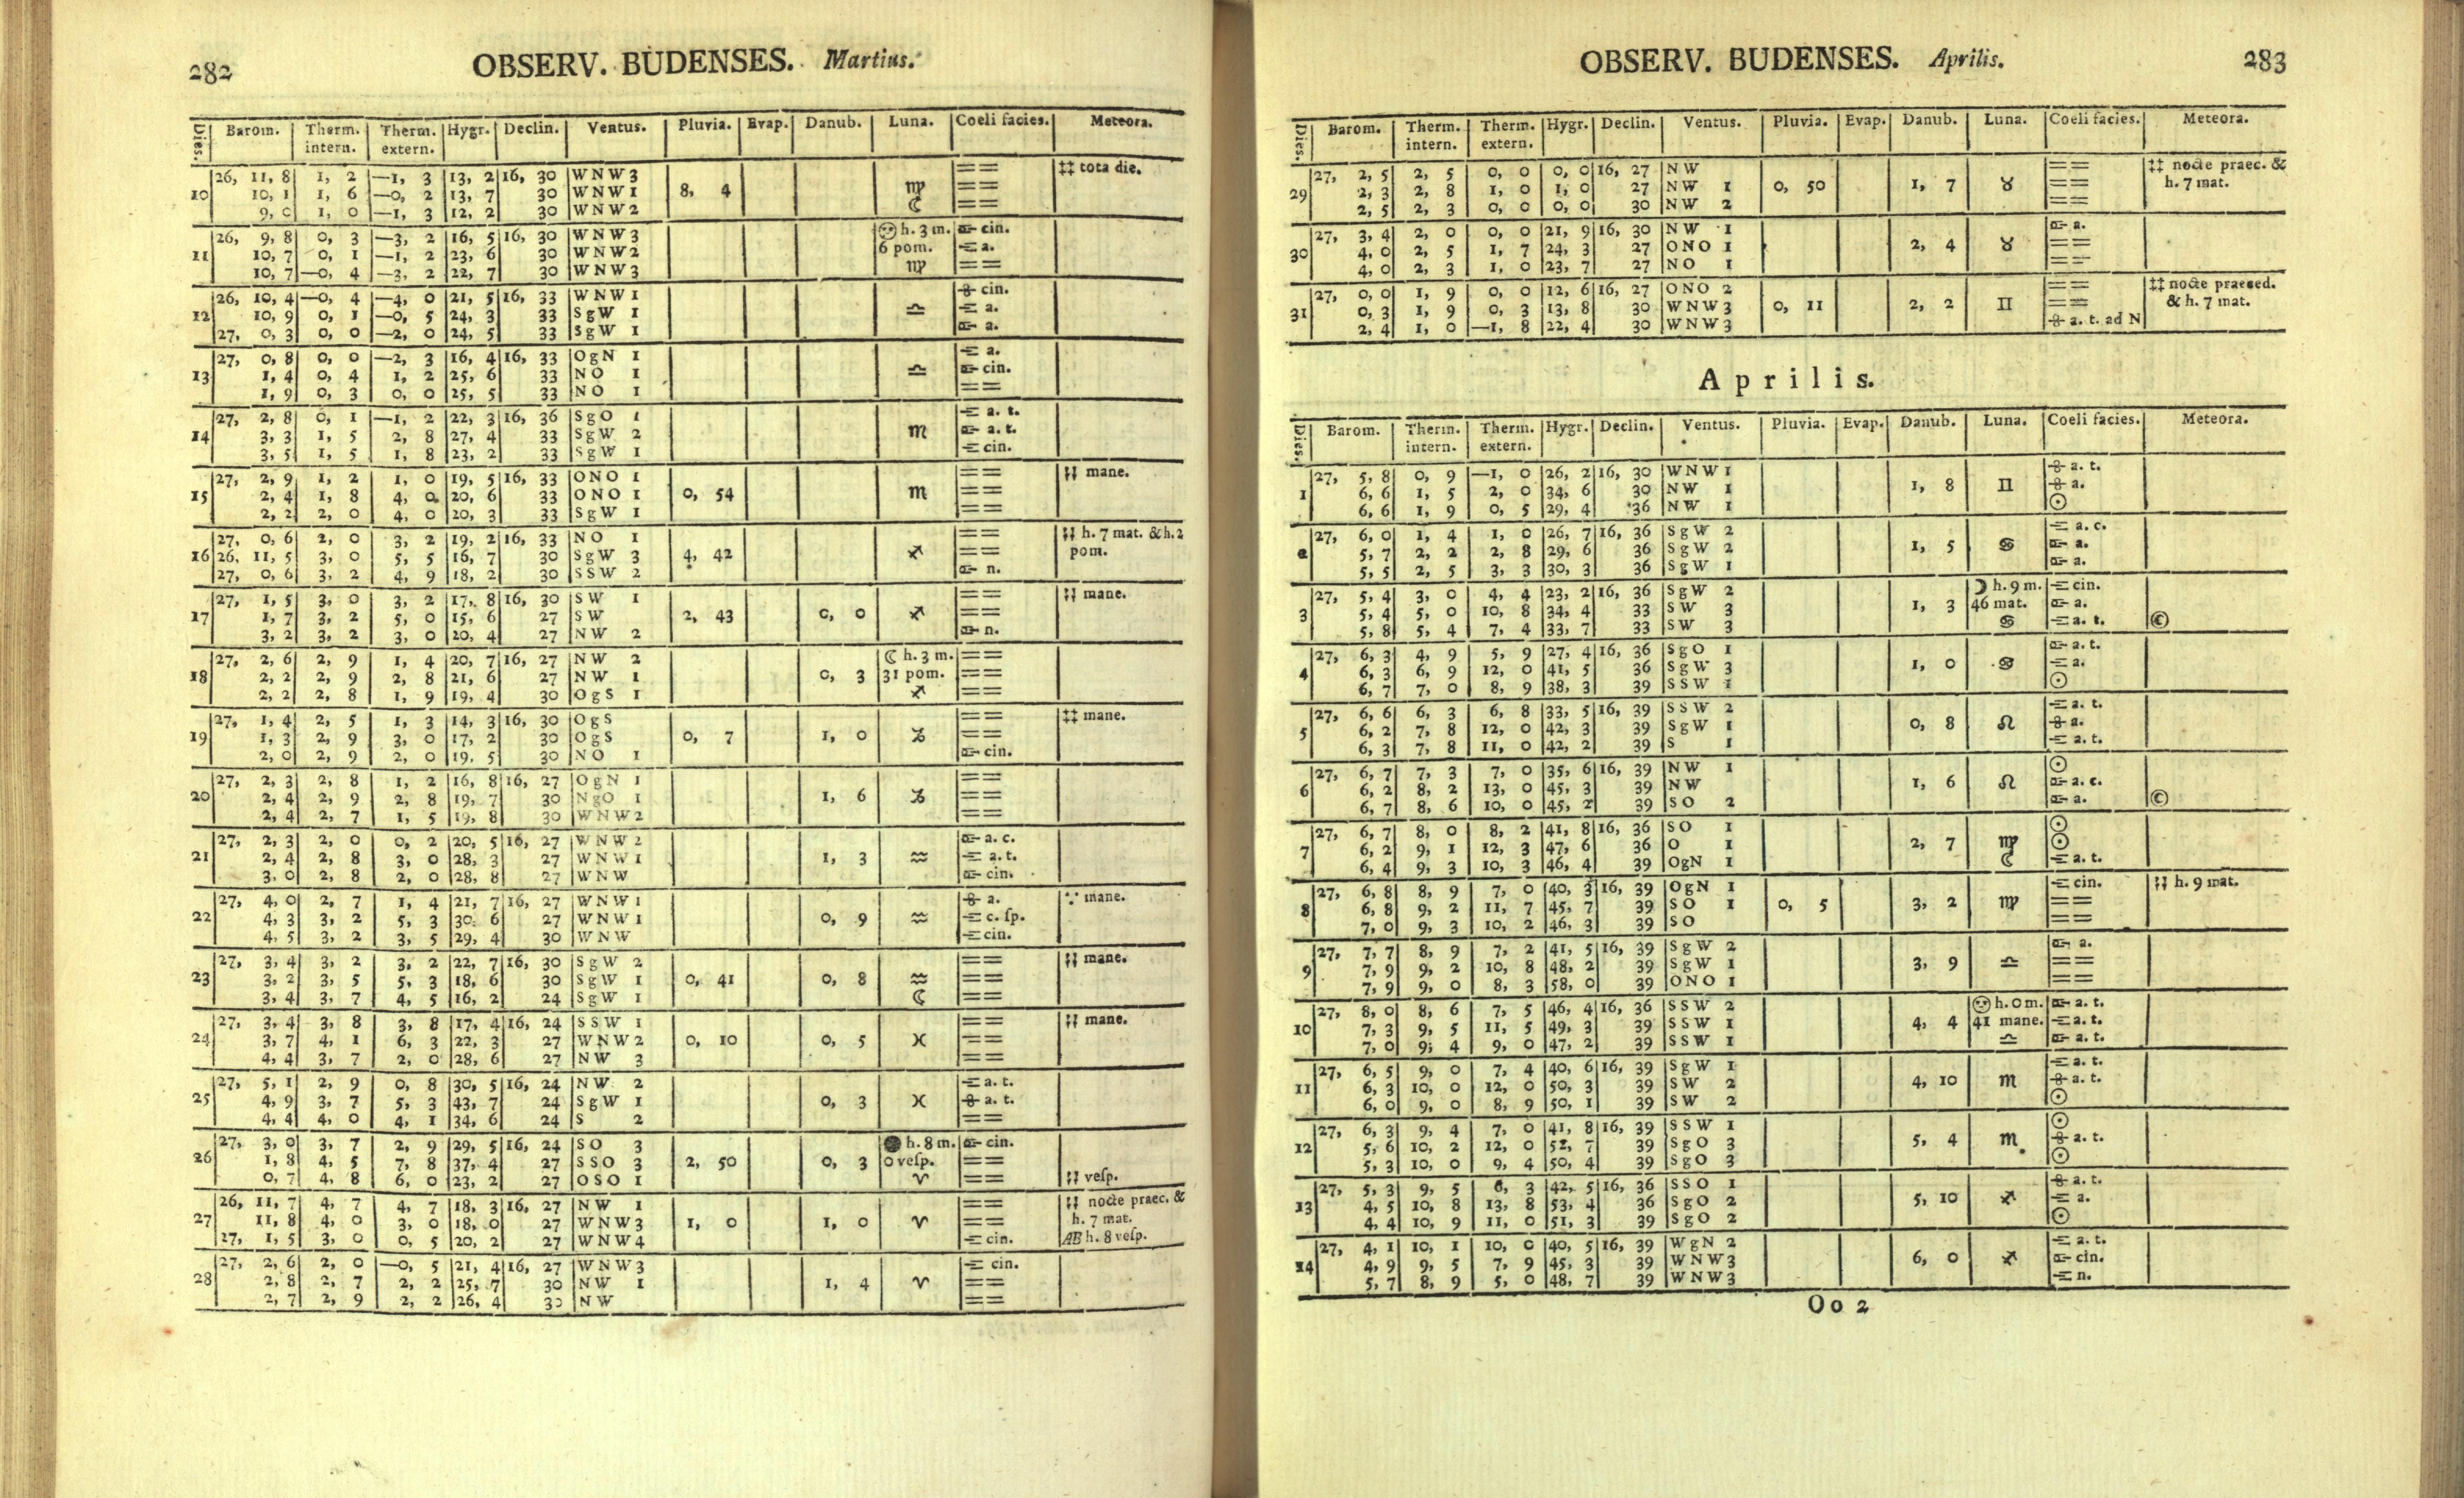 282 OBSERV. BUDENSES. Martius.
Dies. Barom. Therm. intern. Therm. extern. Hygr. Declin. Ventus. Pluvia. Evap. Danub. Luna. Coeli facies. Meteora.
26, 11, 8 1, 2 —1, 3 13, 2 16, 30 WNW 3 == ‡‡ tota die.
10 10, 1 1, 6 —0, 2 13, 7 30 WNW 1 8, 4 ♍ ==
9, 0 1, 0 —1, 3 12, 2 30 WNW 2 ☾ ==
26, 9, 8 0, 3 —3, 2 16, 5 16, 30 WNW 3 h. 3 m. cin.
11 10, 7 0, 1 —1, 2 23, 6 30 WNW 2 6 pom. a.
10, 7 —0, 4 —3, 2 22, 7 30 WNW 3 ♍ ==
26, 10, 4 —0, 4 —4, 0 21, 5 16, 33 WNW 1 cin.
12 10, 9 0, 1 —0, 5 24, 3 33 SgW 1 ♎ a.
27, 0, 3 0, 0 —2, 0 24, 5 33 SgW 1 a.
27, 0, 8 0, 0 —2, 3 16, 4 16, 33 OgN 1 a.
13 1, 4 0, 4 1, 2 25, 6 33 NO 1 ♎ cin.
1, 9 0, 3 0, 0 25, 5 33 NO 1 ==
27, 2, 8 0, 1 —1, 2 22, 3 16, 36 SgO 1 a. t.
14 3, 3 1, 5 2, 8 27, 4 33 SgW 2 ♏ a. t.
3, 5 1, 5 1, 8 23, 2 33 SgW 1 cin.
27, 2, 9 1, 2 1, 0 19, 5 16, 33 ONO 1 == mane.
15 2, 4 1, 8 4, 0 20, 6 33 ONO 1 0, 54 ♏ ==
2, 2 2, 0 4, 0 20, 3 33 SgW 1 ==
27, 0, 6 2, 0 3, 2 19, 2 16, 33 NO 1 == h. 7 mat. & h. 2
16 26, 11, 5 3, 0 5, 5 16, 7 30 SgW 3 4, 42 ♐ == pom.
27, 0, 6 3, 2 4, 9 18, 2 30 SSW 2 n.
27, 1, 5 3, 0 3, 2 17, 8 16, 30 SW 1 == mane.
17 1, 7 3, 2 5, 0 15, 6 27 SW 2, 43 0, 0 ♐ ==
3, 2 3, 2 3, 0 20, 4 27 NW 2 n.
27, 2, 6 2, 9 1, 4 20, 7 16, 27 NW 2 ☾ h. 3 m. ==
18 2, 2 2, 9 2, 8 21, 6 27 NW 1 0, 3 31 pom. ==
2, 2 2, 8 1, 9 19, 4 30 OgS 1 ♐ ==
27, 1, 4 2, 5 1, 3 14, 3 16, 30 OgS == ‡‡ mane.
19 1, 3 2, 9 3, 0 17, 2 30 OgS 0, 7 1, 0 ♑ ==
2, 0 2, 9 2, 0 19, 5 30 NO 1 cin.
27, 2, 3 2, 8 1, 2 16, 8 16, 27 OgN 1 ==
20 2, 4 2, 9 2, 8 19, 7 30 NgO 1 1, 6 ♑ ==
2, 4 2, 7 1, 5 19, 8 30 WNW 2 ==
27, 2, 3 2, 0 0, 2 20, 5 16, 27 WNW 2 a. c.
21 2, 4 2, 8 3, 0 28, 3 27 WNW 1 1, 3 ♒ a. t.
3, 0 2, 8 2, 0 28, 8 27 WNW cin.
27, 4, 0 2, 7 1, 4 21, 7 16, 27 WNW 1 a. mane.
22 4, 3 3, 2 5, 3 30, 6 27 WNW 1 0, 9 ♒ c. ſp.
4, 5 3, 2 3, 5 29, 4 30 WNW cin.
27, 3, 4 3, 2 3, 2 22, 7 16, 30 SgW 2 == mane.
23 3, 2 3, 5 5, 3 18, 6 30 SgW 1 0, 41 0, 8 ♒ ==
3, 4 3, 7 4, 5 16, 2 24 SgW 1 ☾ ==
27, 3, 4 3, 8 3, 8 17, 4 16, 24 SSW 1 == mane.
24 3, 7 4, 1 6, 3 22, 3 27 WNW 2 0, 10 0, 5 ♓ ==
4, 4 3, 7 2, 0 28, 6 27 NW 3 ==
27, 5, 1 2, 9 0, 8 30, 5 16, 24 NW 2 a. t.
25 4, 9 3, 7 5, 3 43, 7 24 SgW 1 0, 3 ♓ a. t.
4, 4 4, 0 4, 1 34, 6 24 S 2 ==
27, 3, 0 3, 7 2, 9 29, 5 16, 24 SO 3 ● h. 8 m. cin.
26 1, 8 4, 5 7, 8 37, 4 27 SSO 3 2, 50 0, 3 0 veſp. ==
0, 7 4, 8 6, 0 23, 2 27 OSO 1 ♈ == veſp.
26, 11, 7 4, 7 4, 7 18, 3 16, 27 NW 1 == nocte praec. &
27 11, 8 4, 0 3, 0 18, 0 27 WNW 3 1, 0 1, 0 ♈ == h. 7 mat.
27, 1, 5 3, 0 0, 5 20, 2 27 WNW 4 cin. AB h. 8 veſp.
27, 2, 6 2, 0 —0, 5 21, 4 16, 27 WNW 3 cin.
28 2, 8 2, 7 2, 2 25, 7 30 NW 1 1, 4 ♈ ==
2, 7 2, 9 2, 2 26, 4 30 NW ==
OBSERV. BUDENSES. Aprilis. 283
Dies. Barom. Therm. intern. Therm. extern. Hygr. Declin. Ventus. Pluvia. Evap. Danub. Luna. Coeli facies. Meteora.
27, 2, 5 2, 5 0, 0 0, 0 16, 27 NW == ‡‡ nocte praec. &
29 2, 3 2, 8 1, 0 1, 0 27 NW 1 0, 50 1, 7 ♉ == h. 7 mat.
2, 5 2, 3 0, 0 0, 0 30 NW 2 ==
27, 3, 4 2, 0 0, 0 21, 9 16, 30 NW 1 a.
30 4, 0 2, 5 1, 7 24, 3 27 ONO 1 2, 4 ♉ ==
4, 0 2, 3 1, 0 23, 7 27 NO 1 ==
27, 0, 0 1, 9 0, 0 12, 6 16, 27 ONO 2 == ‡‡ nocte praeced.
31 0, 3 1, 9 0, 3 13, 8 30 WNW 3 0, 11 2, 2 ♊ == & h. 7 mat.
2, 4 1, 0 —1, 8 22, 4 30 WNW 3 a. t. ad N
Aprilis.
Dies. Barom. Therm. intern. Therm. extern. Hygr. Declin. Ventus. Pluvia. Evap. Danub. Luna. Coeli facies. Meteora.
27, 5, 8 0, 9 —1, 0 26, 2 16, 30 WNW 1 a. t.
1 6, 6 1, 5 2, 0 34, 6 30 NW 1 1, 8 ♊ a.
6, 6 1, 9 0, 5 29, 4 36 NW 1 ☉
27, 6, 0 1, 4 1, 0 26, 7 16, 36 SgW 2 a. c.
2 5, 7 2, 2 2, 8 29, 6 36 SgW 2 1, 5 ♋ a.
5, 5 2, 5 3, 3 30, 3 36 SgW 1 a.
27, 5, 4 3, 0 4, 4 23, 2 16, 36 SgW 2 ☽ h. 9 m. cin.
3 5, 4 5, 0 10, 8 34, 4 33 SW 3 1, 3 46 mat. a.
5, 8 5, 4 7, 4 33, 7 33 SW 3 ♋ a. t. ©
27, 6, 3 4, 9 5, 9 27, 4 16, 36 SgO 1 a. t.
4 6, 3 6, 9 12, 0 41, 5 36 SgW 3 1, 0 ♋ a.
6, 7 7, 0 8, 9 38, 3 39 SSW 1 ☉
27, 6, 6 6, 3 6, 8 33, 5 16, 39 SSW 2 a. t.
5 6, 2 7, 8 12, 0 42, 3 39 SgW 1 0, 8 ♌ a.
6, 3 7, 8 11, 0 42, 2 39 S 1 a. t.
27, 6, 7 7, 3 7, 0 35, 6 16, 39 NW 1 ☉
6 6, 2 8, 2 13, 0 45, 3 39 NW 1, 6 ♌ a. c.
6, 7 8, 6 10, 0 45, 2 39 SO 2 a. ©
27, 6, 7 8, 0 8, 2 41, 8 16, 36 SO 1 ☉
7 6, 2 9, 1 12, 3 47, 6 36 O 1 2, 7 ♍ ☉
6, 4 9, 3 10, 3 46, 4 39 OgN 1 ☾ a. t.
27, 6, 8 8, 9 7, 0 40, 3 16, 39 OgN 1 cin. h. 9 mat.
8 6, 8 9, 2 11, 7 45, 7 39 SO 1 0, 5 3, 2 ♍ ==
7, 0 9, 3 10, 2 46, 3 39 SO ==
27, 7, 7 8, 9 7, 2 41, 5 16, 39 SgW 2 a.
9 7, 9 9, 2 10, 8 48, 2 39 SgW 1 3, 9 ♎ ==
7, 9 9, 0 8, 3 58, 0 39 ONO 1 ==
27, 8, 0 8, 6 7, 5 46, 4 16, 36 SSW 2 h. 0 m. a. t.
10 7, 3 9, 5 11, 5 49, 3 39 SSW 1 4, 4 41 mane. a. t.
7, 0 9, 4 9, 0 47, 2 39 SSW 1 ♎ a. t.
27, 6, 5 9, 0 7, 4 40, 6 16, 39 SgW 1 a. t.
11 6, 3 10, 0 12, 0 50, 3 39 SW 2 4, 10 ♏ a. t.
6, 0 9, 0 8, 9 50, 1 39 SW 2 ☉
27, 6, 3 9, 4 7, 0 41, 8 16, 39 SSW 1 ☉
12 5, 6 10, 2 12, 0 52, 7 39 SgO 3 5, 4 ♏ a. t.
5, 3 10, 0 9, 4 50, 4 39 SgO 3 ☉
27, 5, 3 9, 5 6, 3 42, 5 16, 36 SSO 1 a. t.
13 4, 5 10, 8 13, 8 53, 4 36 SgO 2 5, 10 ♐ a.
4, 4 10, 9 11, 0 51, 3 39 SgO 2 ☉
27, 4, 1 10, 1 10, 0 40, 5 16, 39 WgN 2 a. t.
14 4, 9 9, 5 7, 9 45, 3 39 WNW 3 6, 0 ♐ cin.
5, 7 8, 9 5, 0 48, 7 39 WNW 3 n.
Oo 2